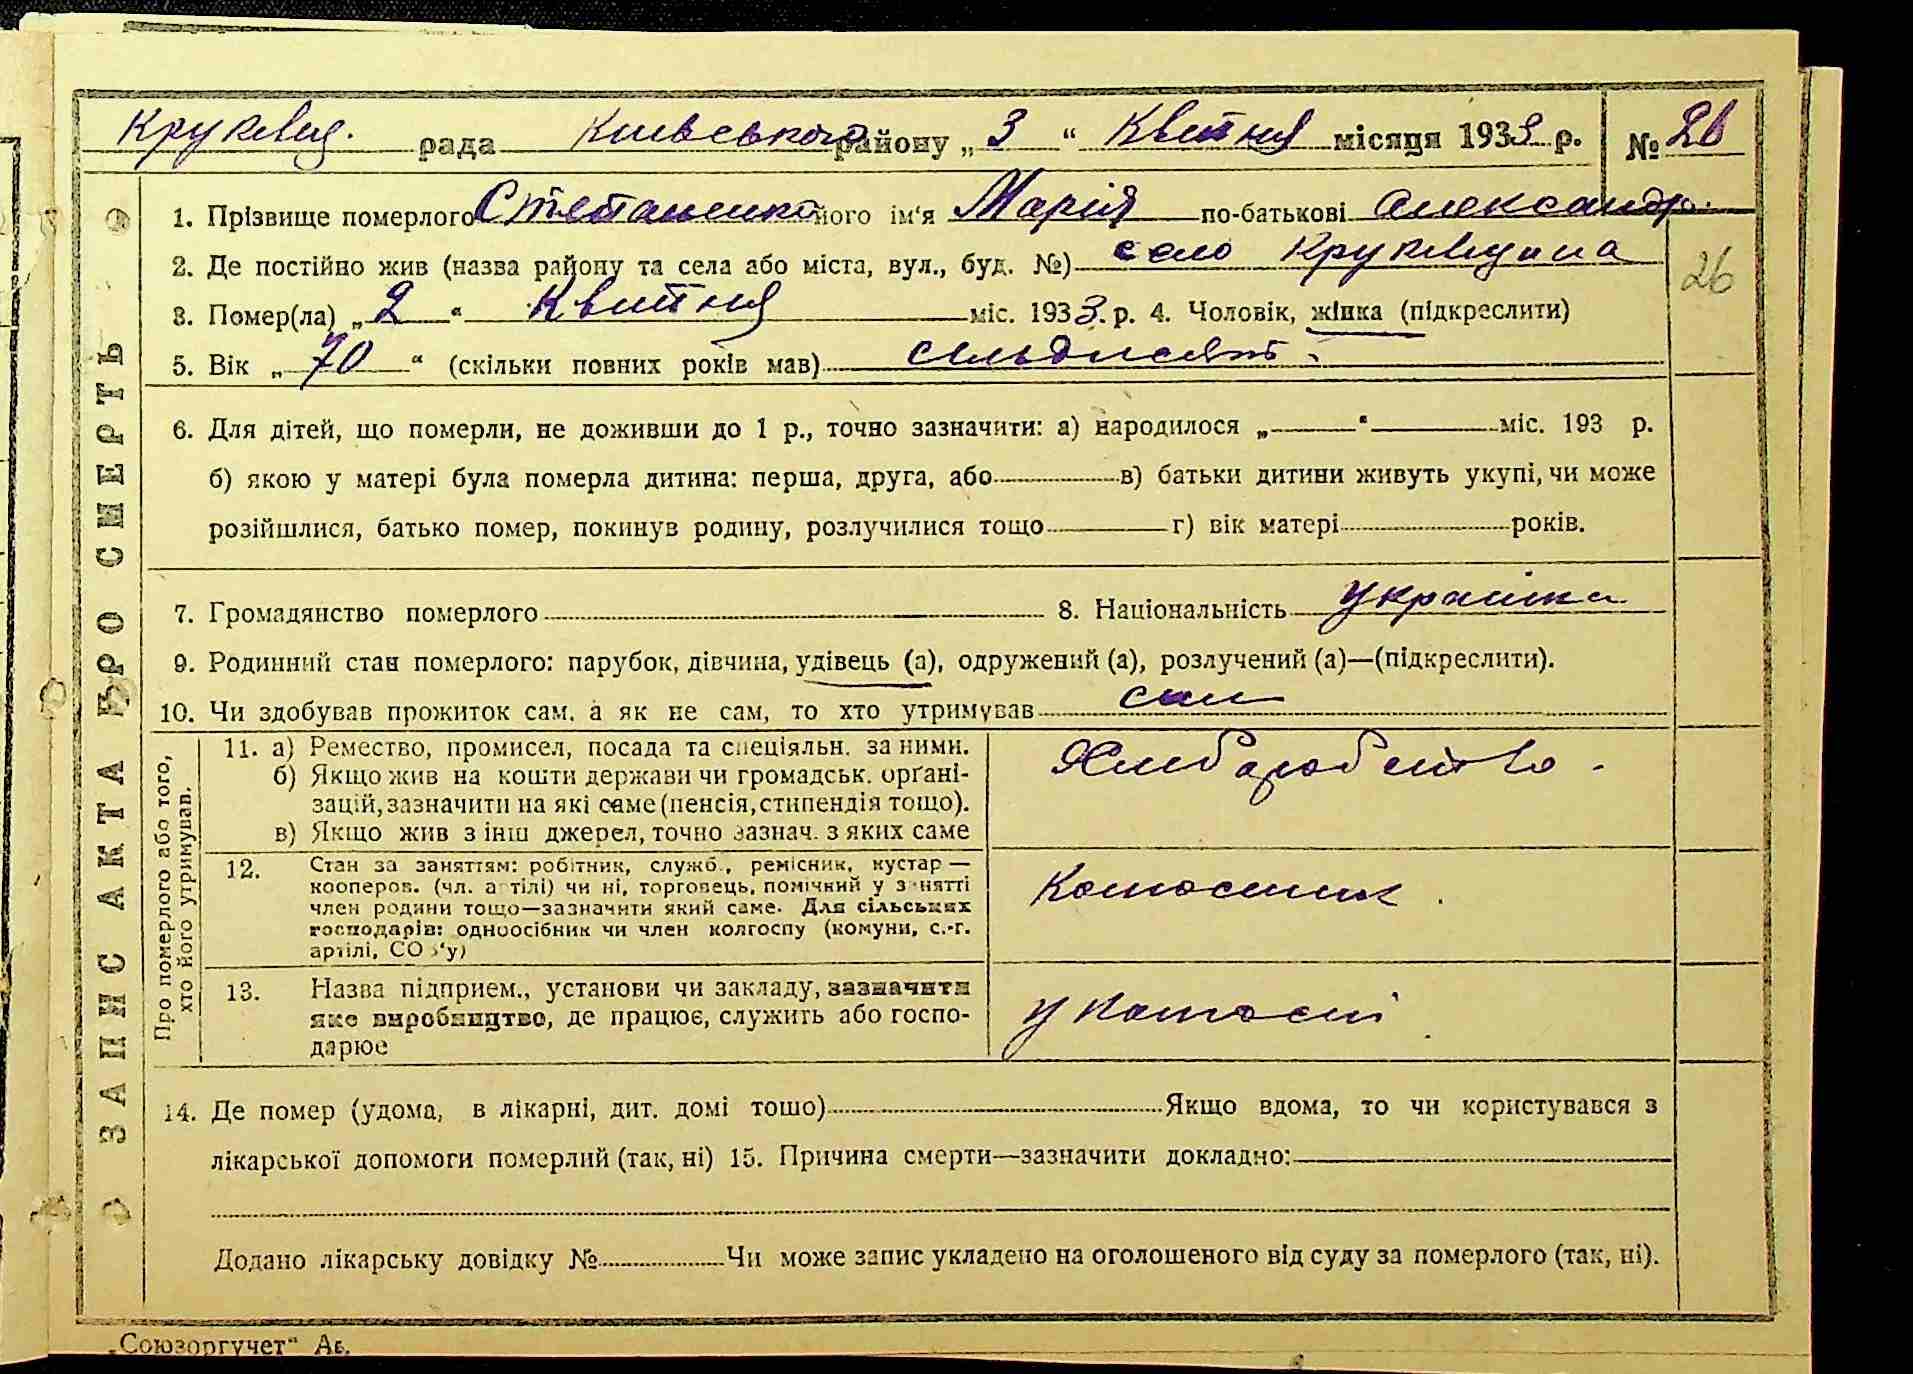 Круківщ. рада Київського району „3“ Квітня місяця 1933 р. № 26
1. Прізвище померлого Степаненко його ім‘я Марія по-батькові Александр.
2. Де постійно жив (назва району та села або міста, вул., буд. №) село Круківщина
26
3. Помер(ла) „2“ Квітня міс. 1933 р. 4. Чоловік, жінка (підкреслити)
5. Вік „70“ (скільки повних років мав) сімдисять.
6. Для дітей, що померли, не доживши до 1 р., точно зазначити: а) народилося „ “ міс. 193 р.
б) якою у матері була померла дитина: перша, друга, або в) батьки дитини живуть укупі, чи може
розійшлися, батько помер, покинув родину, розлучилися тощо г) вік матері років.
7. Громадянство померлого 8. Національність українка
9. Родинний стан померлого: парубок, дівчина, удівець (а), одружений (а), розлучений (а)—(підкреслити).
10. Чи здобував прожиток сам, а як не сам, то хто утримував сам
11. а) Ремество, промисел, посада та спеціяльн. за ними. Хліборобство.
б) Якщо жив на кошти держави чи громадськ. орґані-
зацій, зазначити на які саме (пенсія, стипендія тощо).
в) Якщо жив з інш джерел, точно зазнач. з яких саме
12. Стан за заняттям: робітник, служб., ремісник, кустар —
кооперов. (чл. артілі) чи ні, торговець, помічний у занятті
член родини тощо—зазначити який саме. Для сільських
господарів: одноосібник чи член колгоспу (комуни, с.-г.
артілі, СОЗ‘у)
Колгосник.
13. Назва підприєм., установи чи закладу, зазначити
яке виробництво, де працює, служить або госпо-
дарює
у колгоспі.
Про померлого або того,
хто його утримував.
14. Де помер (удома, в лікарні, дит. домі тошо) Якщо вдома, то чи користувався з
лікарської допомоги померлий (так, ні) 15. Причина смерти—зазначити докладно:
Додано лікарську довідку № Чи може запис укладено на оголошеного від суду за померлого (так, ні).
ЗАПИС АКТА ПРО СМЕРТЬ
„Союзоргучет“